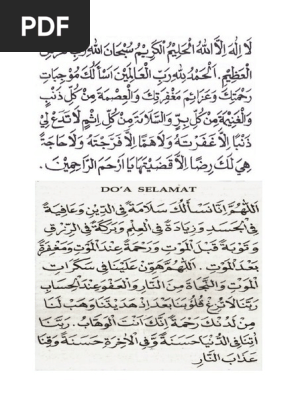 PDF
لَا إِلٰهَ إِلَّا اللهُ الْحَلِيْمُ الْكَرِيْمُ سُبْحَانَ اللهِ رَبِّ
الْعَظِيْمِ. اَلْحَمْدُ لِلّٰهِ رَبِّ الْعَالَمِيْنَ اَسْأَلُكَ مُوْجِبَاتِ
رَحْمَتِكَ وَعَزَائِمَ مَغْفِرَتِكَ وَالْعِصْمَةَ مِنْ كُلِّ ذَنْبٍ
وَالْغَنِيْمَةَ مِنْ كُلِّ بِرٍّ وَالسَّلَامَةَ مِنْ كُلِّ اِثْمٍ لَا تَدَعْ لِيْ
ذَنْبًا اِلَّا غَفَرْتَهُ وَلَا هَمًّا اِلَّا فَرَّجْتَهُ وَلَا حَاجَةً
هِيَ لَكَ رِضًا اِلَّا قَضَيْتَهَا يَا اَرْحَمَ الرَّاحِمِيْنَ.
DO'A SELAMAT
اَللّٰهُمَّ اِنَّا نَسْأَلُكَ سَلَامَةً فِى الدِّيْنِ وَعَافِيَةً
فِى الْجَسَدِ وَزِيَادَةً فِى الْعِلْمِ وَبَرَكَةً فِى الرِّزْقِ
وَتَوْبَةً قَبْلَ الْمَوْتِ وَرَحْمَةً عِنْدَ الْمَوْتِ وَمَغْفِرَةً
بَعْدَ الْمَوْتِ. اَللّٰهُمَّ هَوِّنْ عَلَيْنَا فِى سَكَرَاتِ
الْمَوْتِ وَالنَّجَاةَ مِنَ النَّارِ وَالْعَفْوَ عِنْدَ الْحِسَابِ
رَبَّنَا لَا تُزِغْ قُلُوْبَنَا بَعْدَ اِذْ هَدَيْتَنَا وَهَبْ لَنَا
مِنْ لَدُنْكَ رَحْمَةً اِنَّكَ اَنْتَ الْوَهَّابُ. رَبَّنَا
اٰتِنَا فِى الدُّنْيَا حَسَنَةً وَّفِى الْاٰخِرَةِ حَسَنَةً وَّقِنَا
عَذَابَ النَّارِ